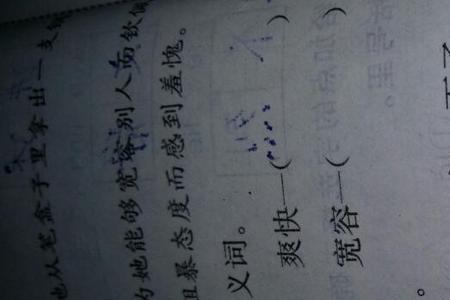 他从笔盒子里拿出一支
的她能够宽容别人而钦佩
粗暴态度而感到羞愧。
义词。
爽快—(      )
宽容—(      )